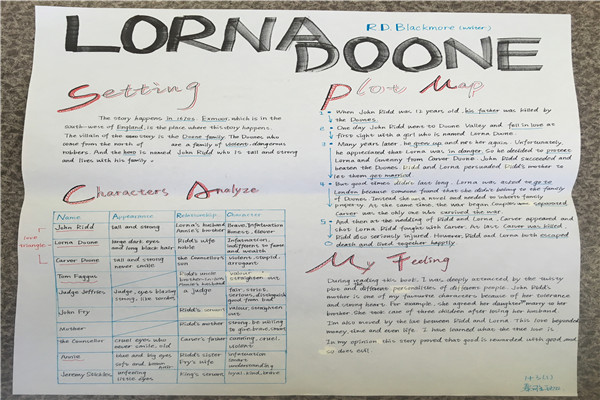 LORNA DOONE
R.D. Blackmore (writer)
Setting
The story happens in 1670s. Exmoor, which is in the
south-west of England, is the place where this story happens.
The villain of the story is the Doone family. The Doones who
come from the north of are a family of violent, dangerous
robbers. And the hero is named John Ridd who is tall and strong
and lives with his family.
Characters Analyze
love triangle
Name Appearance Relationship Character
John Ridd tall and strong Lorna's husband Annie's brother Brave, Infatuation honest, clever
Lorna Doone large dark eyes and long black hair Ridd's wife noble Infatuation, indifferent to fame and wealth
Carver Doone tall and strong never smile the Counsellor's son violent, stupid, arrogant
Tom Faggus Ridd's uncle Annie's husband valour straighten out
Judge Jeffries Judge, eyes blazing strong, like tender a judge fair, strict serious, distinguish good from bad
John Fry Ridd's servant valour, straighten out
Mother Ridd's mother strong, be willing to give, brave, smart
the Counsellor Cruel eyes who never smile, old Carver's father cunning, cruel, violent
Annie blue and big eyes soft and brown hair Ridd's sister Fry's wife infatuation smart understanding
Jeremy Stickles unfeeling little eyes King's servant loyal, kind, brave
Plot Map
1 When John Ridd was 12 years old, his father was killed by
the Doones.
2 One day John Ridd went to Doone Valley and fell in love at
first sight with a girl who is named Lorna Doone.
3 Many years later, he grew up and met her again. Unfortunately,
he appreciated that Lorna was in danger. So he decided to protect
Lorna and Gwenny from Carver Doone. John Ridd succeeded and
beaten the Doones. Ridd and Lorna persuaded Ridd's mother to
let them get married.
4 But good times didn't last long. Lorna was asked to go to
London because someone found that she didn't belong to the family
of Doones. Instead she was a novel and needed to inherit family
property. At the same time, the war began. Couples were separated.
Carver was the only one who survived the war.
5 And then at the wedding of Ridd and Lorna, Carver appeared and
shot Lorna. Ridd fought with Carver. At last Carver was killed.
Ridd also seriously injured. However, Ridd and Lorna both escaped
death and lived together happily
My Feeling
During reading this book, I was deeply attracted by the twisty
plot and the different personalities of different people. John Ridd's
mother is one of my favourite characters because of her tolerance
and strong heart. For example, she agreed her daughter marry to her
brother. She took care of three children after losing her husband.
I'm also moved by the love between Ridd and Lorna. This love beyonded
money, time and even life. I have learned what the true love is.
In my opinion this story proved that good is rewarded with good and
so does evil!